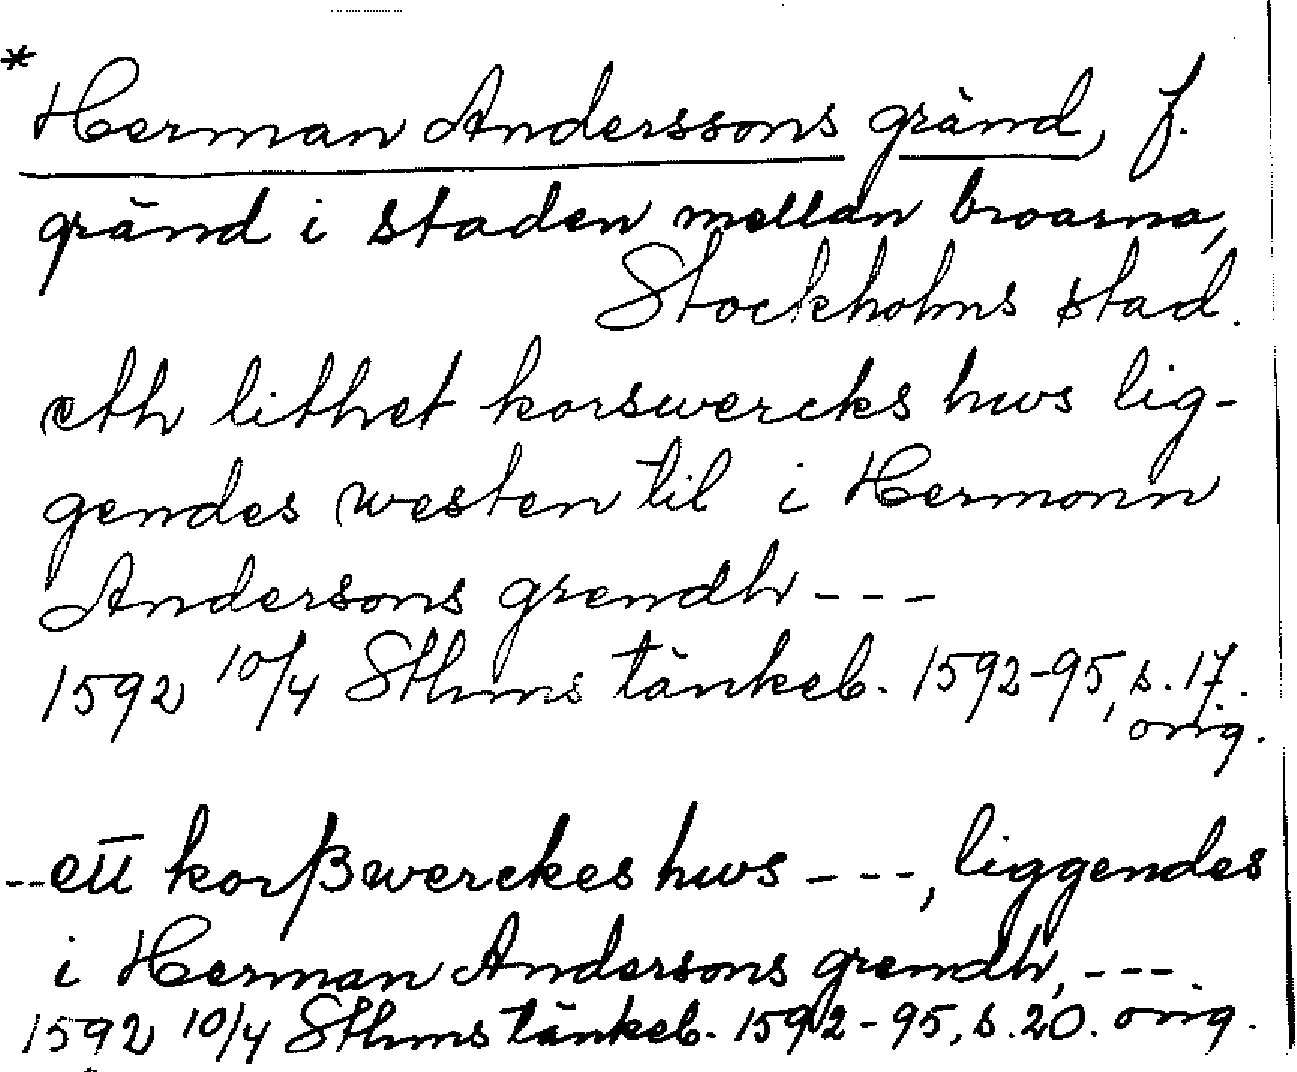 * Herman Anderssons gränd, f.
gränd i staden mellan broarna,
Stockholms stad.
eth lithet korswercks hws lig-
gendes westen til i Hermonn
Andersons grendh ---
1592 10/4 Sthms tänkeb. 1592-95, s. 17.
orig.
--- ett korßwerckes hws ---, liggendes
i Herman Andersons grendh, ---.
1592 10/4 Sthms tänkeb. 1592-95, s. 20. orig.